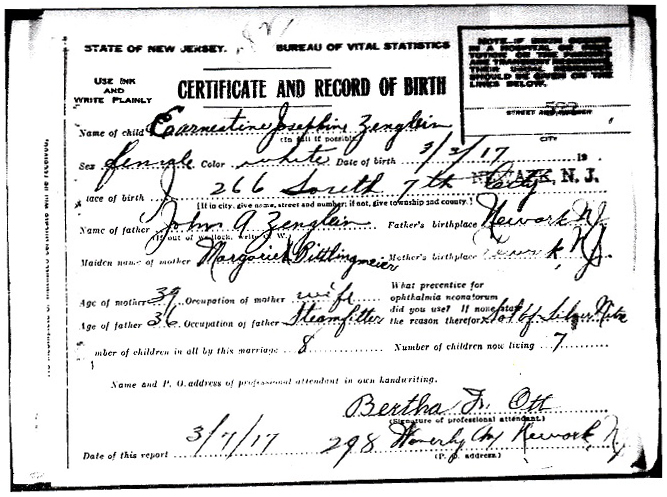 STATE OF NEW JERSEY. BUREAU OF VITAL STATISTICS
NOTE.—IF BIRTH OCCURS
IN A HOSPITAL OR
LINES BELOW.
SHOULD BE GIVEN ON THE
USE INK
AND
WRITE PLAINLY
CERTIFICATE AND RECORD OF BIRTH
STREET AND NUMBER
CITY
Name of child Earnestine Josephine Zenglein
(in full if possible)
Sex female Color white Date of birth 3/2/17 19
lace of birth 266 South 7th NEWARK, N. J.
[If in city, give name, street and number; if not, give township and county.]
Name of father John A Zenglein Father's birthplace Newark NJ
Maiden name of mother Pittlingmeier Mother's birthplace Newark NJ.
Age of mother 39 Occupation of mother wife
Age of father 36 Occupation of father Steamfitter
What preventice for
ophthalmia neonatorum
did you use? If none state
the reason therefor Sol of Silver Nitra
mber of children in all by this marriage 8 Number of children now living 7
Name and P. O. address of professional attendant in own handwriting.
Bertha Fr. Ott
(Signature of professional attendant.)
Date of this report 3/7/17 298 Waverly Av Newark N.
(P. O. address.)